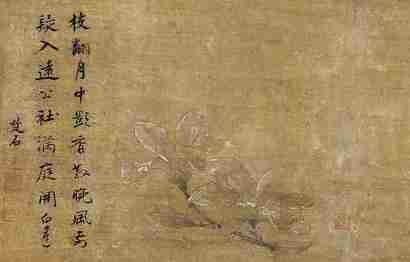 枝翻月中影香散晚風前
疑入遠公社滿庭開白蓮
楚石